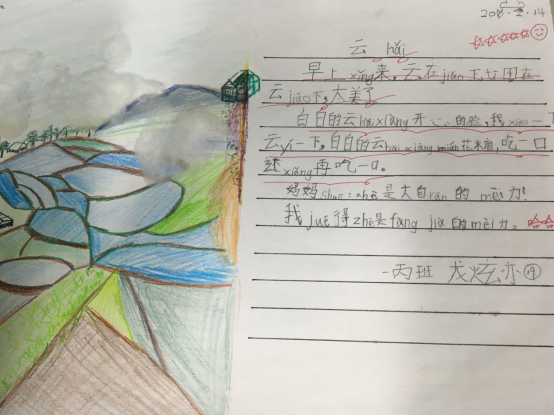 2018.2.14
云 hǎi
早上xǐng来，云在jiān下，人田在
云jiǎo下，太美了
白白的云hǎi xiàng开心的脸，我xiǎo一下
云yi一下，白白的云hǎi xiàng mián花米唐，吃一口
还xiǎng再吃一口。
妈妈shuō：zhè是大自rán的mèi力！
我jué得zhè是fàng jià的mèi力。哈哈
一丙班